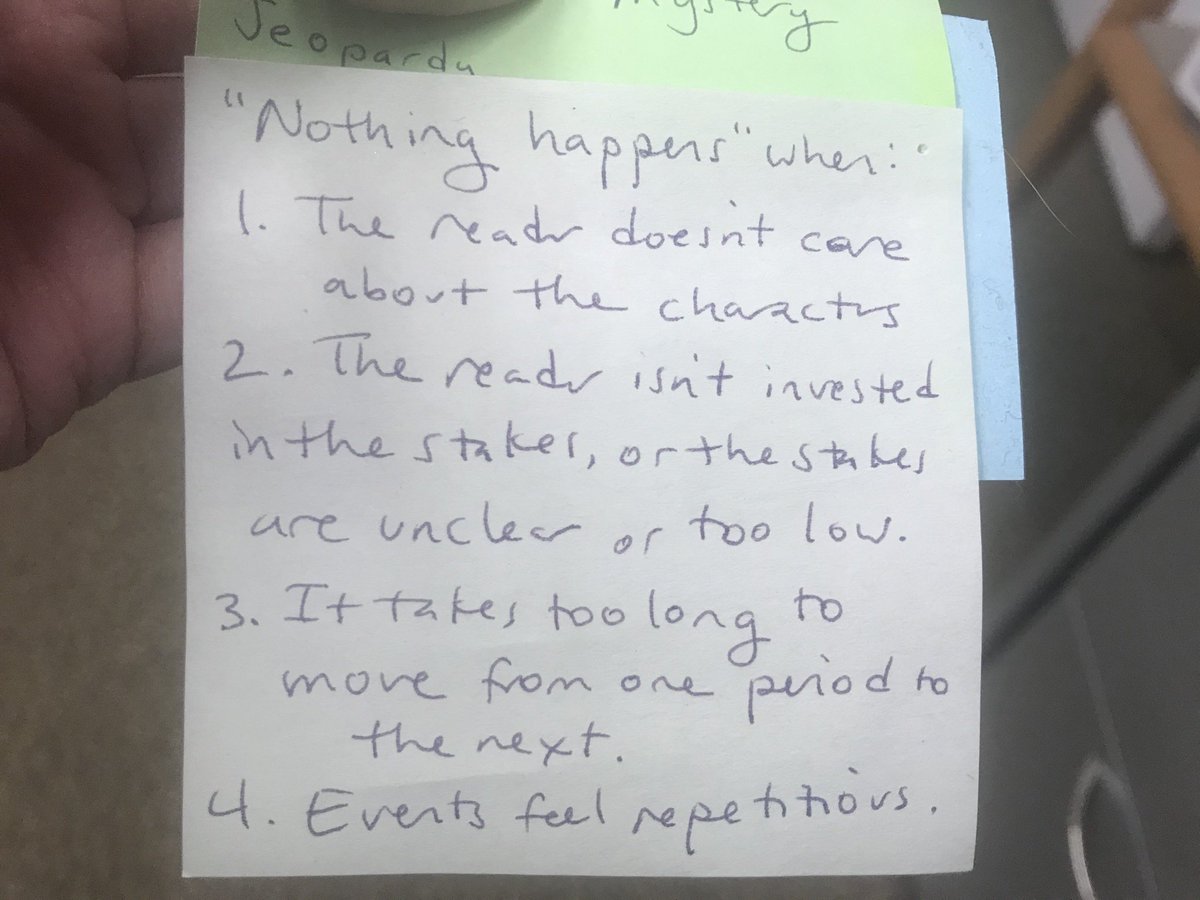 mystery
Jeopardy
"Nothing happens" when:
1. The reader doesn't care
about the characters
2. The reader isn't invested
in the stakes, or the stakes
are unclear or too low.
3. It takes too long to
move from one period to
the next.
4. Events feel repetitious.